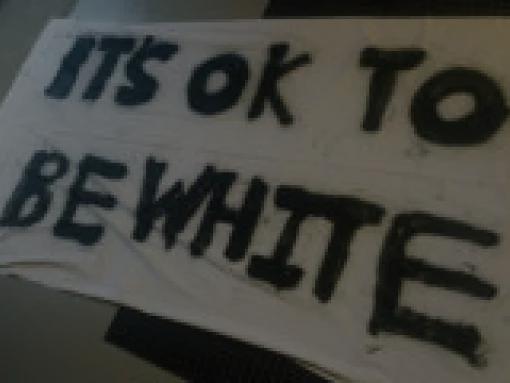 IT'S OK TO
BE WHITE